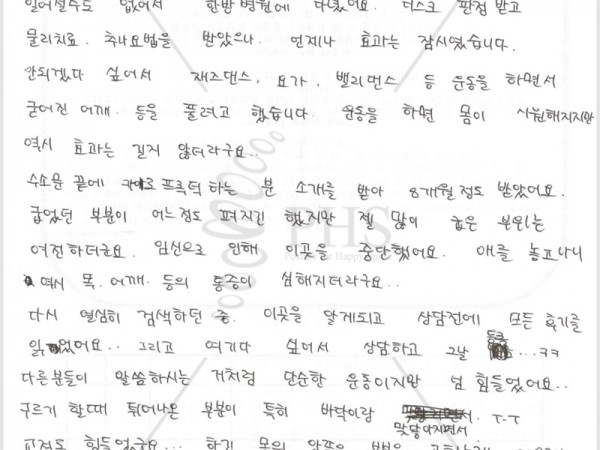 일어설수도 없어서 한방병원에 다녔어요. 디스크 판정 받고
물리치료. 추나요법을 받았으나. 언제나 효과는 잠시였습니다.
안되겠다 싶어서 재즈댄스, 요가, 밸리댄스 등 운동을 하면서
굳어진 어깨. 등을 풀려고 했습니다. 운동을 하면 몸이 시원해지지만
역시 효과는 길지 않더라구요..
수소문 끝에 카이로프랙틱 하는 분 소개를 받아 8개월정도 받았어요.
굽었던 부분이 어느정도 펴지긴 했지만 젤 많이 굽은 부위는
여전하더군요. 임신으로 인해 이곳을 중단했어요. 애를 놓고나니
역시 목. 어깨. 등의 통증이 심해지더라구요..
다시 열심히 검색하던 중. 이곳을 알게되고 상담전에 모든 후기를
읽었어요.. 그리고 여기다 싶어서 상담하고 그날 등록...ㅋㅋ
다른분들이 말씀하시는 거처럼 단순한 운동이지만 넘 힘들었어요..
구르기 할때 튀어나온 부분이 특히 바닥이랑 맞닿아지면서. T.T
PHS